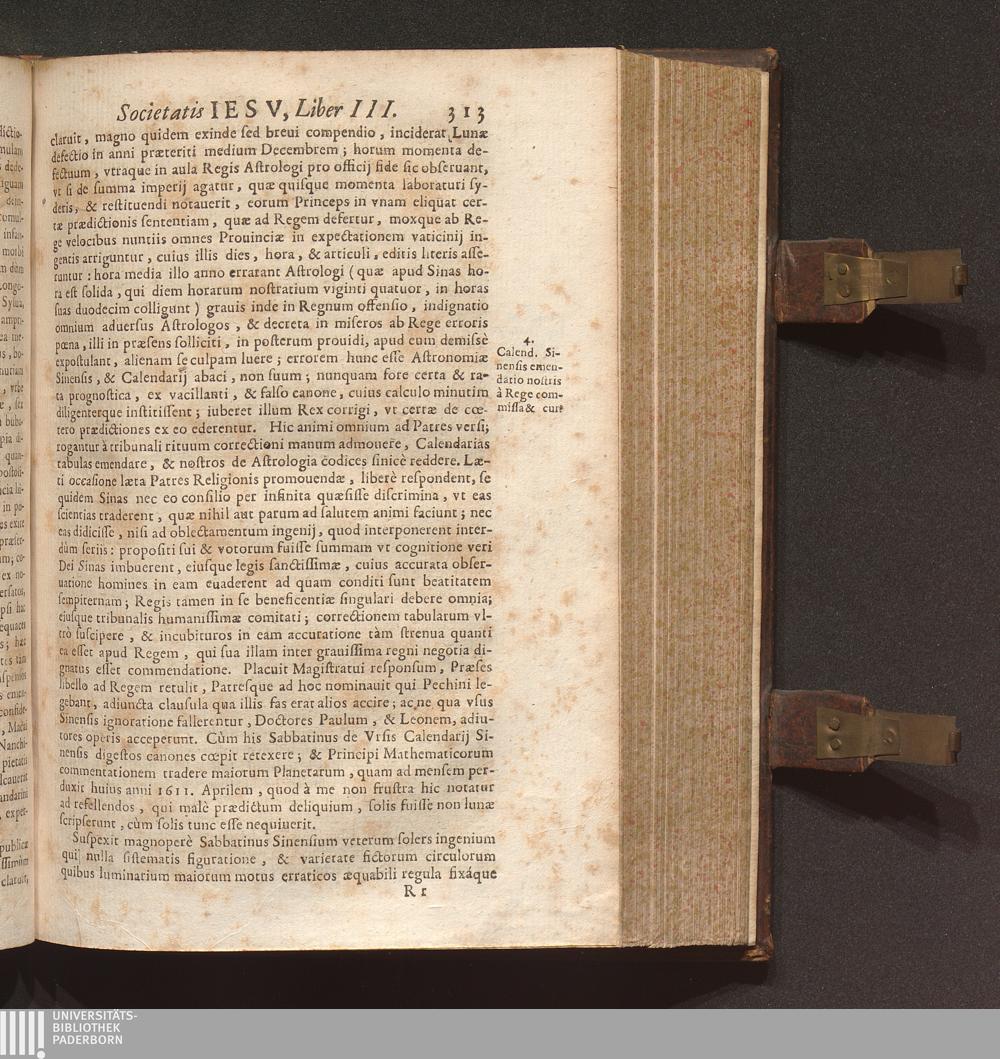 Societatis IESV, Liber III. 313
claruit, magno quidem exinde sed breui compendio, inciderat Lunæ
defectio in anni præteriti medium Decembrem; horum momenta de-
fectuum, vtraque in aula Regis Astrologi pro officij fide sic obseruant,
vt si de summa imperij agatur, quæ quisque momenta laboraturi sy-
deris, & restituendi notauerit, eorum Princeps in vnam eliquat cer-
tæ prædictionis sententiam, quæ ad Regem defertur, moxque ab Re-
ge velocibus nuntiis omnes Prouinciæ in expectationem vaticinij in-
gentis arriguntur, cuius illis dies, hora, & articuli, editis literis asse-
runtur: hora media illo anno errarant Astrologi (quæ apud Sinas ho-
ra est solida, qui diem horarum nostratium viginti quatuor, in horas
suas duodecim colligunt) grauis inde in Regnum offensio, indignatio
omnium aduersus Astrologos, & decreta in miseros ab Rege erroris
pœna, illi in præsens solliciti, in posterum prouidi, apud eum demissè
expostulant, alienam se culpam luere; errorem hunc esse Astronomiæ
Sinensis, & Calendarij abaci, non suum; nunquam fore certa & ra-
ta prognostica, ex vacillanti, & falso canone, cuius calculo minutim
diligenterque institissent; iuberet illum Rex corrigi, vt certæ de cœ-
tero prædictiones ex eo ederentur. Hic animi omnium ad Patres versi;
rogantur à tribunali rituum correctioni manum admouere, Calendarias
tabulas emendare, & nostros de Astrologia codices sinicè reddere. Læ-
ti occasione læta Patres Religionis promouendæ, liberè respondent, se
quidem Sinas nec eo consilio per infinita quæsisse discrimina, vt eas
scientias traderent, quæ nihil aut parum ad salutem animi faciunt; nec
eas didicisse, nisi ad oblectamentum ingenij, quod interponerent inter-
dùm seriis: propositi sui & votorum fuisse summam vt cognitione veri
Dei Sinas imbuerent, eiusque legis sanctissimæ, cuius accurata obser-
uatione homines in eam euaderent ad quam conditi sunt beatitatem
sempiternam; Regis tamen in se beneficentiæ singulari debere omnia;
eiusque tribunalis humanissimæ comitati; correctionem tabularum vl-
trò suscipere, & incubituros in eam accuratione tàm strenua quanti
ea esset apud Regem, qui sua illam inter grauissima regni negotia di-
gnatus esset commendatione. Placuit Magistratui responsum, Præses
libello ad Regem retulit, Patresque ad hoc nominauit qui Pechini le-
gebant, adiuncta clausula qua illis fas erat alios accire; ac ne qua vsus
Sinensis ignoratione fallerentur, Doctores Paulum, & Leonem, adiu-
tores operis acceperunt. Cùm his Sabbatinus de Vrsis Calendarij Si-
nensis digestos canones cœpit retexere; & Principi Mathematicorum
commentationem tradere maiorum Planetarum, quam ad mensem per-
duxit huius anni 1611. Aprilem, quod à me non frustra hic notatur
ad refellendos, qui malè prædictum deliquium, solis fuisse non lunæ
scripserunt, cùm solis tunc esse nequiuerit.
Suspexit magnoperè Sabbatinus Sinensium veterum solers ingenium
qui nulla sistematis figuratione, & varietate fictorum circulorum
quibus luminarium maiorum motus erraticos æquabili regula fixáque
R r
4.
Calend. Si-
nensis emen-
datio nostris
à Rege com-
missa & curæ
UNIVERSITÄTS-
BIBLIOTHEK
PADERBORN